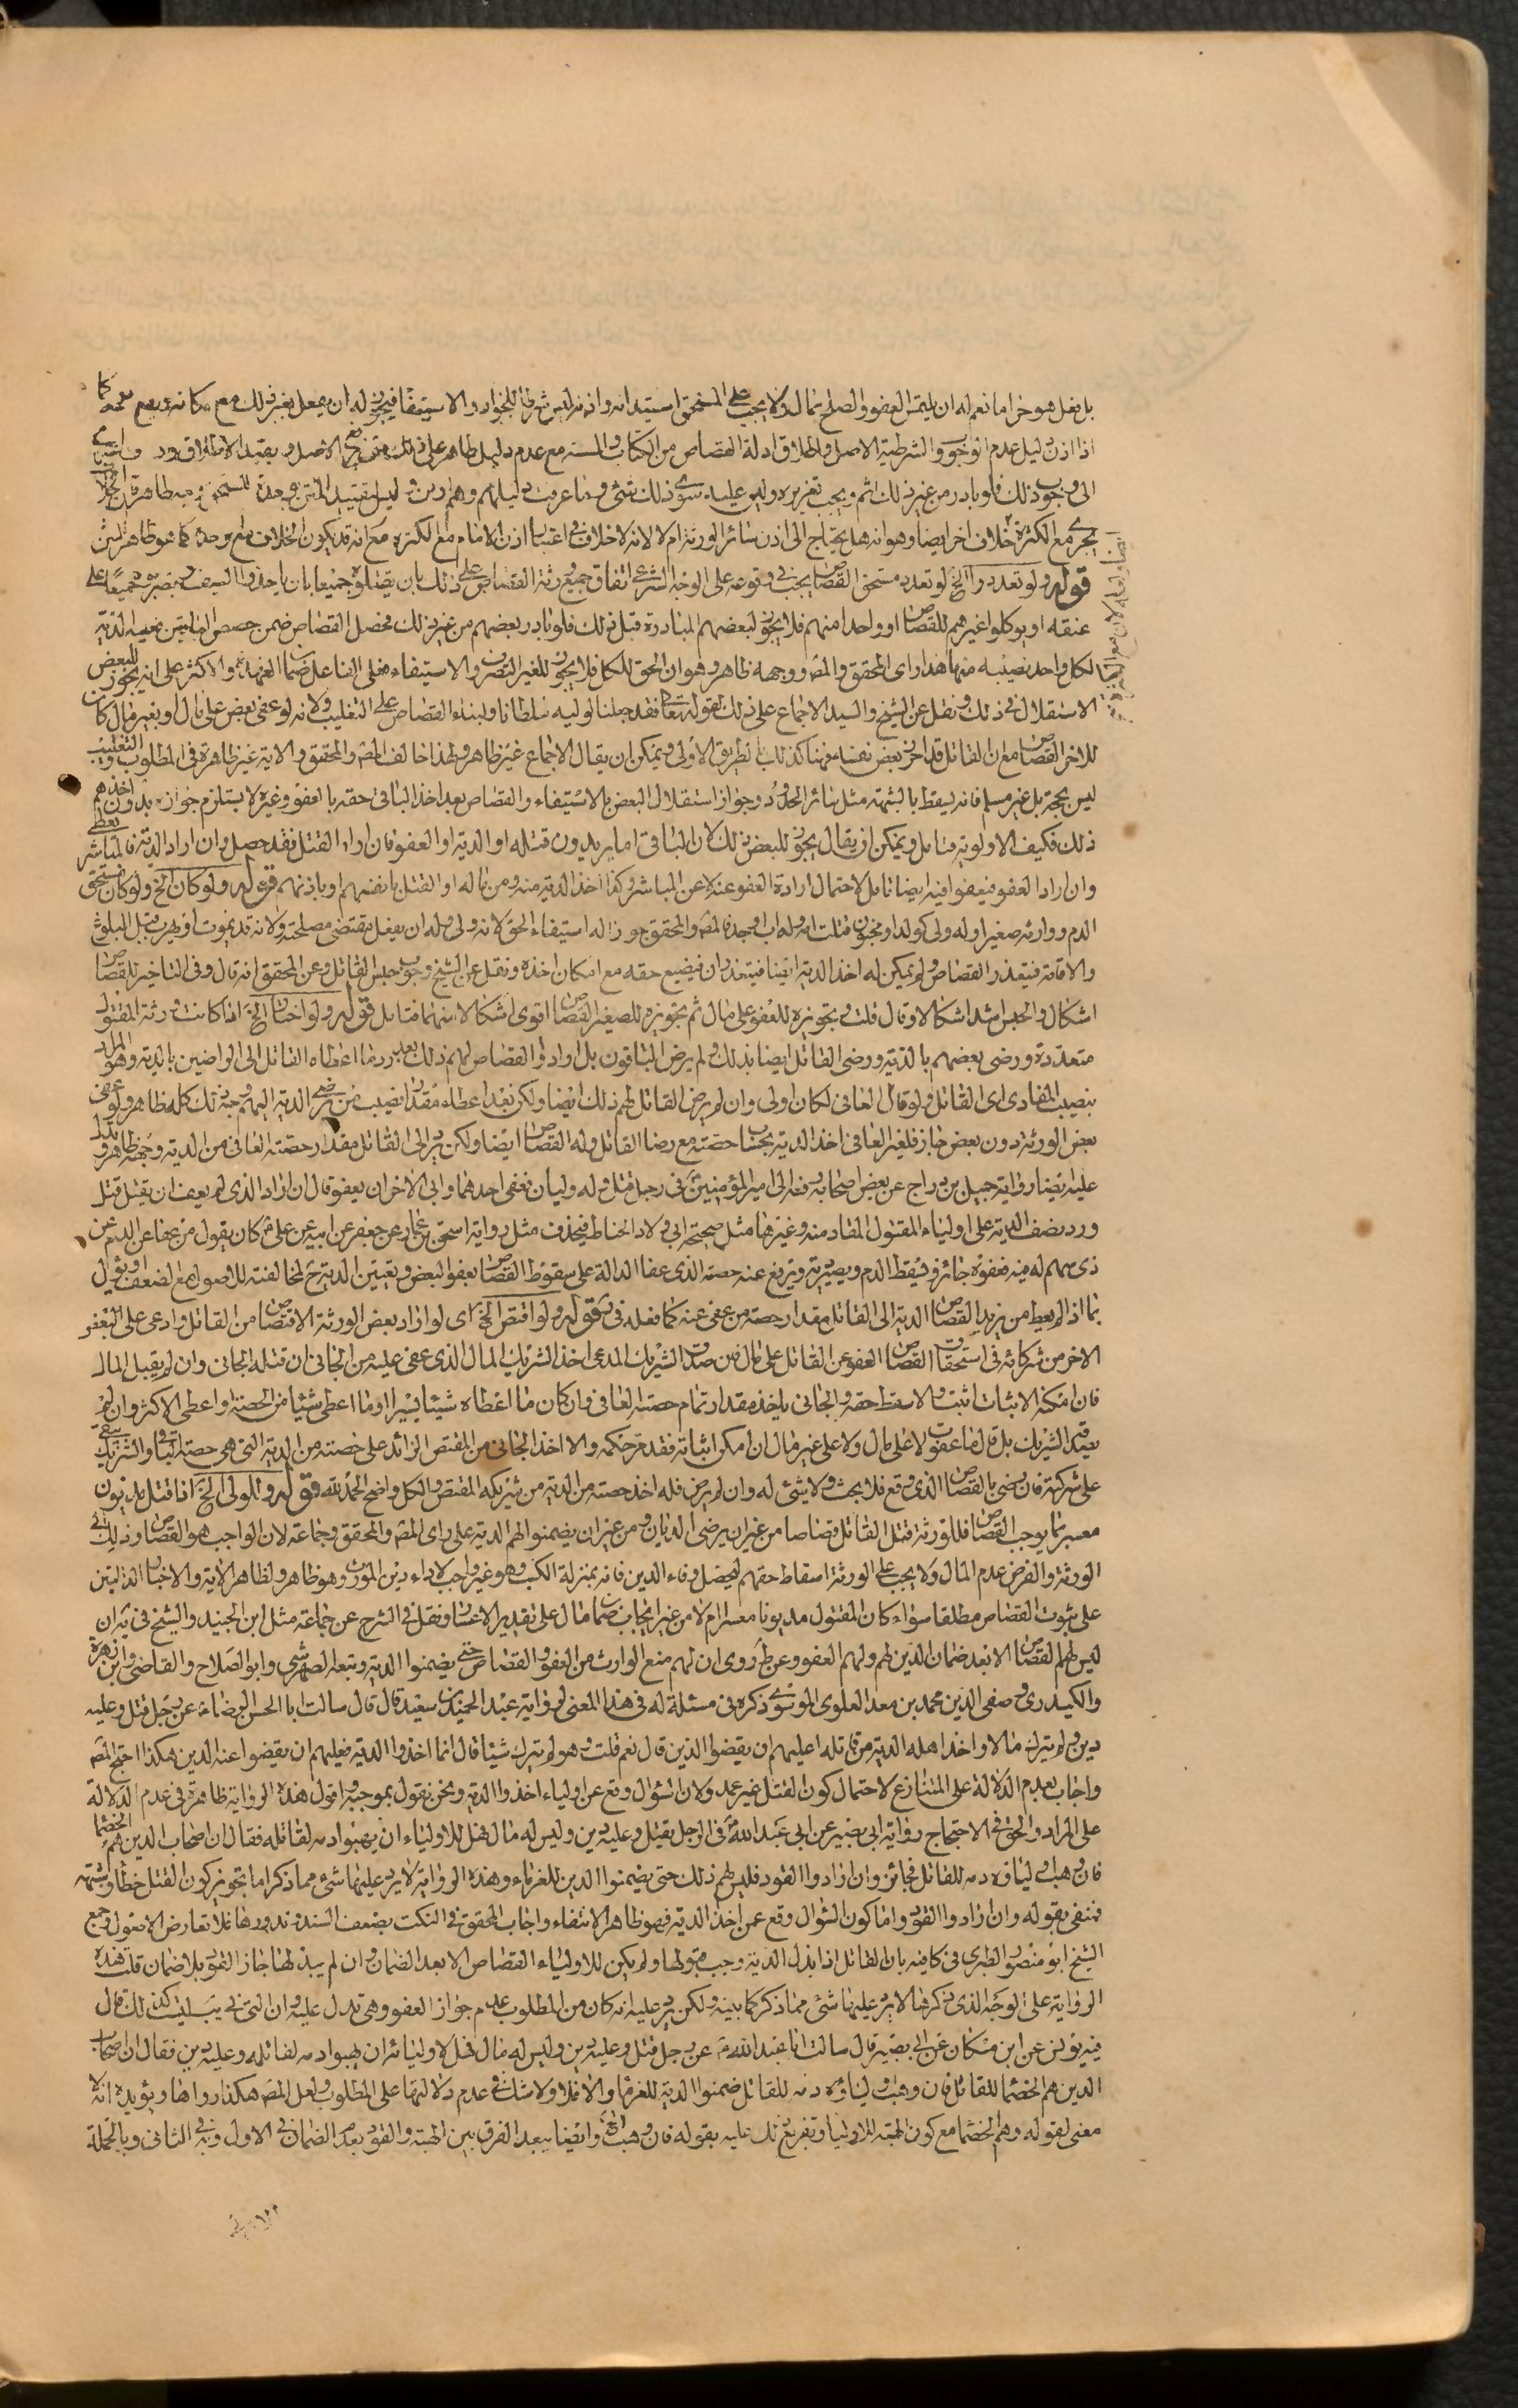 بل نقل هو حرام نعم له ان يلتمس العفو والصلح بمال ولا يجب على المستحق استيذانه واذنه ليس شرطا للجواز والاستيفاء فيجوز له ان يفعل بغير ذلك مع
اذا اذن دليل عدم الوجوب والشرطية الاصل واطلاق ادلة القصاص من الكتاب والسنة مع عدم دليل ظاهر على ذلك
الى وجوب ذلك فلو بادر من غير ذلك اثم ويجب تعزيره وليس عليه سوى ذلك شئ وما عرفت دليلهم وهم ادرى وليس بقيد المتن وحدة المستحق
يجرى مع الكثرة خلاف اخر ايضا وهو انه هل يحتاج الى اذن سائر الورثة ام لا لانه لا خلاف فى اعتبار اذن الامام مع الكثرة مع انه قد يكون الخلاف مع وحدة كما هو ظاهر المتن
قوله ولو تعددوا الخ لو تعدد مستحق القصاص يجب فى وقوعه على الوجه الشرعى اتفاق جميع ورثة القصاص على ذلك بان يقتلوه جميعا بان ياخذوا السيف ويضربوه جميعا على
عنقه او يوكلوا غيرهم للقصاص او واحدا منهم فلا يجوز لبعضهم المبادرة قبل ذلك فلو بادر بعضهم من غير ذلك فحصل القصاص ضمن حصص الباقين من الدية
لكل واحد نصيبه منها هذا راى المحقق والمص ووجهه ظاهر وهو ان الحق للكل فلا يجوز للغير التصرف والاستيفاء فعلى الفاعل ضمان العهدة والاكثر على انه يجوز للبعض
الاستقلال فى ذلك ونقل عن الشيخ والسيد الاجماع على ذلك لقوله تعالى فقد جعلنا لوليه سلطانا ولبناء القصاص على التغليب ولانه لو عفى بعض على مال او بغير مال كان
للاخر القصاص مع ان القاتل قد احرز بعض نفسه فهنا كذلك بالطريق الاولى ويمكن ان يقال الاجماع غير ظاهر ولهذا خالف المص والمحقق والاية غير ظاهرة فى المطلوب والتغليب
ليس بحجة بل غير مسلم فانه يسقط بالشبهة مثل سائر الحدود وجواز استقلال البعض بالاستيفاء والقصاص بعد اخذ الباقى حقه بالعفو وغيره لا يستلزم جوازه بدون اخذهم
ذلك فكيف الاولوية فتامل ويمكن ان يقال يجوز للبعض ذلك لان الباقى اما يريدون قتله او الدية او العفو فان اراد القتل فقد حصل وان اراد الدية فالمباشر يعطى
وان اراد العفو فيعفو وفيه ايضا تامل لاحتمال ارادة العفو عنه لا عن المباشر وكذا اخذ الدية منه ومن ماله او القتل بانفسهم او باذنهم قوله ولو كان الخ ولو كان مستحق
الدم ووارثه صغيرا وله ولى كولد او مجنون قتلت امه وله اب وجد فالمص والمحقق جوزا له استيفاء الحق لانه ولى وله ان يفعل مقتضى مصلحته ولانه قد يموت او يهرب قبل البلوغ
والافاقة فيتعذر القصاص ولم يمكن له اخذ الدية ايضا فيتعذر ان فيضيع حقه مع امكان اخذه ونقل عن الشيخ وجوب حبس القاتل وعن المحقق انه قال وفى التاخير للقصاص
اشكال والحبس اشد اشكالا وقال قلت وتجويزه للعفو على مال ثم تجويزه للصغير القصاص اقوى اشكالا منهما فتامل قوله ولو اختار الخ اذا كانت ورثة المقتول
متعددة ورضى بعضهم بالدية ورضى القاتل ايضا بذلك ولم يرض الباقون بل ارادوا القصاص لهم ذلك بعد رد ما اعطاه القاتل الى الراضين بالدية وهو المراد
بنصيب المفادى اى القاتل ولو قال العافى لكان اولى وان لم يرض القاتل لهم ذلك ايضا ولكن بعد اعطاء مقدار نصيب من رضى الدية اليه وحجة ذلك كله ظاهر ولو عفى
بعض الورثة دون بعض جاز فلغير العافى اخذ الدية بحساب حصته مع رضا القاتل وله القصاص ايضا ولكن يرد الى القاتل مقدار حصته العافى من الدية وجهه ظاهر ويدل
عليه ايضا رواية جميل بن دراج عن بعض اصحابه رفعه الى امير المؤمنين ع فى رجل قتل وله وليان فعفى احدهما وابى الاخر ان يعفو قال ان اراد الذى لم يعف ان يقتل قتل
ورد نصف الدية على اولياء المقتول المقاد منه وغيرها مثل صحيحة ابى ولاد الحناط فيحذف مثل رواية اسحق بن عمار عن جعفر عن ابيه عن على ع كان يقول من عفا عن الدم من
ذى سهم له فيه فعفوه جائز ويسقط الدم ويصير دية ويرفع عنه حصة الذى عفا الدالة على سقوط القصاص بعفو البعض وتعيين الدية ح لمخالفته للاصول مع الضعف او يؤل
بما اذا لم يعط من يريد القصاص الدية الى القاتل مقدار حصة من عفى عنه كما فعله فى يب قوله ولو اقتص الخ اى لو اراد بعض الورثة الاقتصاص من القاتل وادعى على البعض
الاخر من شركائه فى استحقاق القصاص العفو عن القاتل على مال فان صدق الشريك المدعى اخذ الشريك المال الذى عفى عليه من الجانى ان قتله الجانى وان لم يقبل المال
فان امكنه الاثبات اثبت والا سقط حقه والجانى ياخذ مقدار تمام حصة العافى وان كان ما اعطاه شيئا يسيرا او ما اعطى شيئا من الحصة او اعطى الاكثر وان لم
يصدقه الشريك بل قال ما عفوت لا على مال ولا على غير مال ان امكن اثباته فقد مر حكمه والا اخذ الجانى من المقتص الزائد على حصته من الدية التى هى حصة الباقى والشريك يبقى
على شركته فان رضى بالقصاص الذى وقع فلا بحث ولا شئ له وان لم يرض فله اخذ حصته من الدية من شريكه المقتص والكل واضح الحمد لله قوله وللولى الخ اذا قتل مديون
معسر بما يوجب القصاص فللورثة قتل القاتل قصاصا من غير ان يرضى الديان ومن غير ان يضمنوا لهم الدية على راى المص والمحقق وجماعة لان الواجب هو القصاص وذلك الى
الورثة والفرض عدم المال ولا يجب على الورثة اسقاط حقهم ليحصل وفاء الدين فانه بمنزلة الكسب وهو غير واجب لاداء دين المورث وهو ظاهر ولظاهر الاية والاخبار الدالتين
على ثبوت القصاص مطلقا سواء كان المقتول مديونا معسرا ام لا من غير ايجاب ضمان مال على تقدير الاعسار ونقل فى الشرح عن جماعة مثل ابن الجنيد والشيخ فى يه ان
ليس لهم القصاص الا بعد ضمان الدين لهم ولهم العفو وعن ط روى ان لهم منع الوارث من العفو والقصاص حتى يضمنوا الدية وتبعه الصهرشتى وابو الصلاح والقاضى وابن زهرة
والكيدرى وصفى الدين محمد بن معد العلوى الموسوى ذكره فى مسئلة له فى هذا المعنى لرواية عبد الحميد بن سعيد قال قال سالت ابا الحسن الرضا ع عن رجل قتل وعليه
دين ولم يترك مالا واخذ اهله الدية من قاتله اعليهم ان يقضوا الدين قال نعم قلت وهو لم يترك شيئا قال انما اخذوا الدية فعليهم ان يقضوا عنه الدين هكذا احتج المص
واجاب بعدم الدلالة على المتنازع لاحتمال كون القتل غير عمد ولان السؤال وقع عن اولياء اخذوا الدية ونحن نقول بموجبه واقول هذه الرواية ظاهرة فى عدم الدلالة
على المراد والحق فى الاحتجاج رواية ابى بصير عن ابى عبد الله ع فى الرجل يقتل وعليه دين وليس له مال فهل للاولياء ان يهبوا دمه لقاتله فقال ان اصحاب الدين هم الخصماء
فان وهب اولياؤه دمه للقاتل فجائز وان ارادوا القود فليس لهم ذلك حتى يضمنوا الدين للغرماء وهذه الرواية لا يرد عليها شئ مما ذكر اما تجويز كون القتل خطأ وشبهه
فمنفى بقوله وان ارادوا القود واما كون السؤال وقع عمن اخذ الدية فهو ظاهر الانتفاء واجاب المحقق فى النكت بضعف السند وندورها فلا تعارض الاصول وجمع
الشيخ ابو منصور الطبرى فى كافيه بان القاتل اذا بذل الدية وجب قبولها ولم يكن للاولياء القصاص الا بعد الضمان وان لم يبذلها جاز القود بلا ضمان قلت هذه
الرواية على الوجه الذى ذكرها لا يرد عليها شئ مما ذكر كما بينه ولكن يرد عليه انه كان من المطلوب عدم جواز العفو وهى تدل عليه وان التى فى يب ليست كذلك قال
فيه يونس عن ابن مسكان عن ابى بصير قال سالت ابا عبد الله ع عن رجل قتل وعليه دين وليس له مال فهل لاوليائه ان يهبوا دمه لقاتله وعليه دين فقال ان اصحاب
الدين هم الخصماء للقاتل فان وهب اولياؤه دمه للقاتل ضمنوا الدية للغرماء والا فلا ولا شك فى عدم دلالتها على المطلوب ولعل المص هكذا رواها ويؤيده انه لا
معنى لقوله وهم الخصماء مع كون الهبة للاولياء وتفريع ذلك عليه بقوله فان وهب الخ وايضا يبعد الفرق بين الهبة والقود بعدم الضمان فى الاول وبه فى الثانى وبالجملة